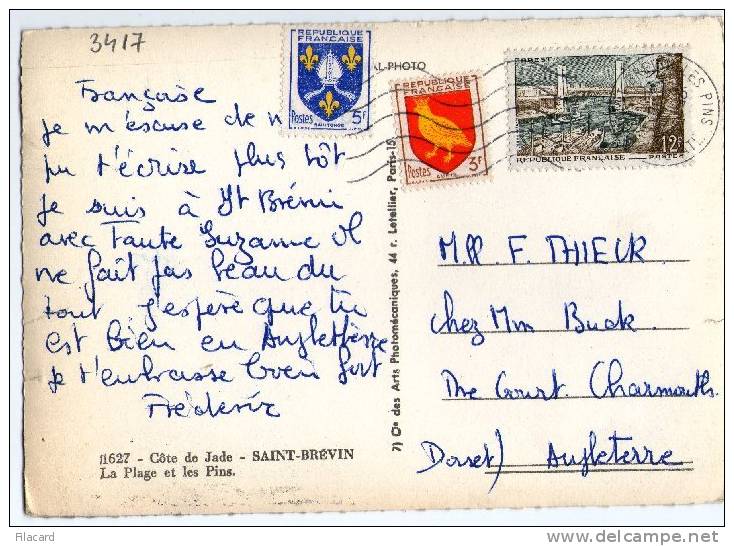 3417
REPUBLIQUE FRANÇAISE
Postes 5F
SAINTONGE
AL-PHOTO
REPUBLIQUE FRANÇAISE
Postes 3F
AUNIS
BREST
12F
REPUBLIQUE FRANÇAISE POSTES
LES PINS
Françoise
Je m'escuse de n
pu t'écrire plus tôt
Je suis à St Brévin
avec Tante Suzanne Il
ne fait pas beau du
tout J'espère que tu
est bien en Angletterre
Je t'embrasse bien fort
Frédéric
11627 - Côte de Jade - SAINT-BRÉVIN
La Plage et les Pins.
7) Cie des Arts Photomécaniques, 44 r. Letellier, Paris-15
Mlle F. THIEUR
chez Mm Buck.
The Court. Charmouth.
Dorset) Angleterre
Filacard
delcampe.net